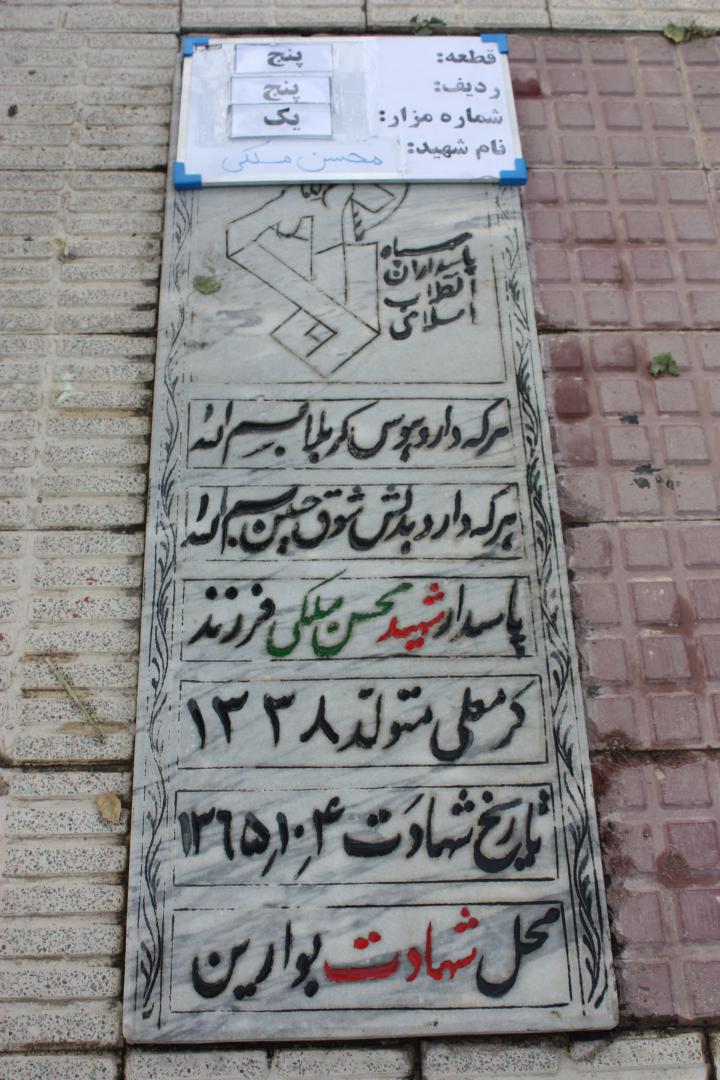 قطعه: پنج
ردیف: پنج
شماره مزار: یک
نام شهید: محسن ملکی
سپاه
پاسداران
انقلاب
اسلامی
هرکه دارد هوس کربلا بسم الله
هرکه دارد بدلش شوق حسین بسم الله
پاسدار شهید محسن ملکی فرزند
کرمعلی متولد ۱۳۳۸
تاریخ شهادت ۱۳۶۵٫۱۰٫۴
محل شهادت بوارین